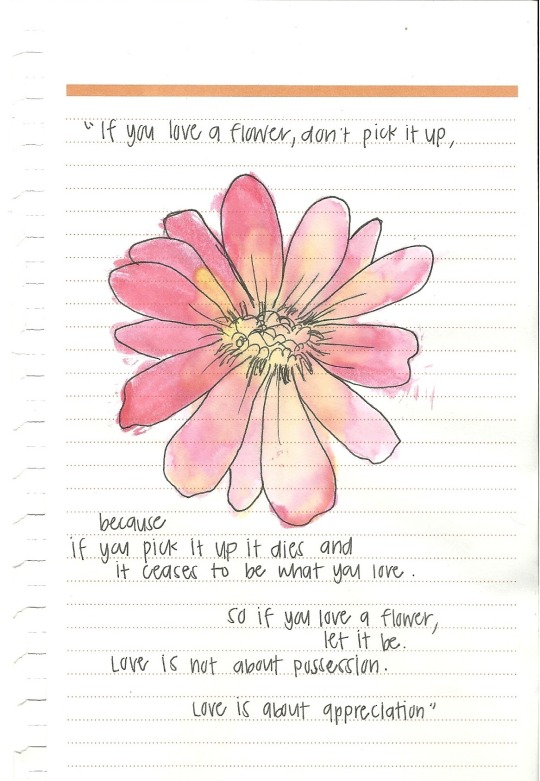 "If you love a flower, don't pick it up,
because
if you pick it up it dies and
it ceases to be what you love.
So if you love a flower,
let it be.
Love is not about possession.
Love is about appreciation"